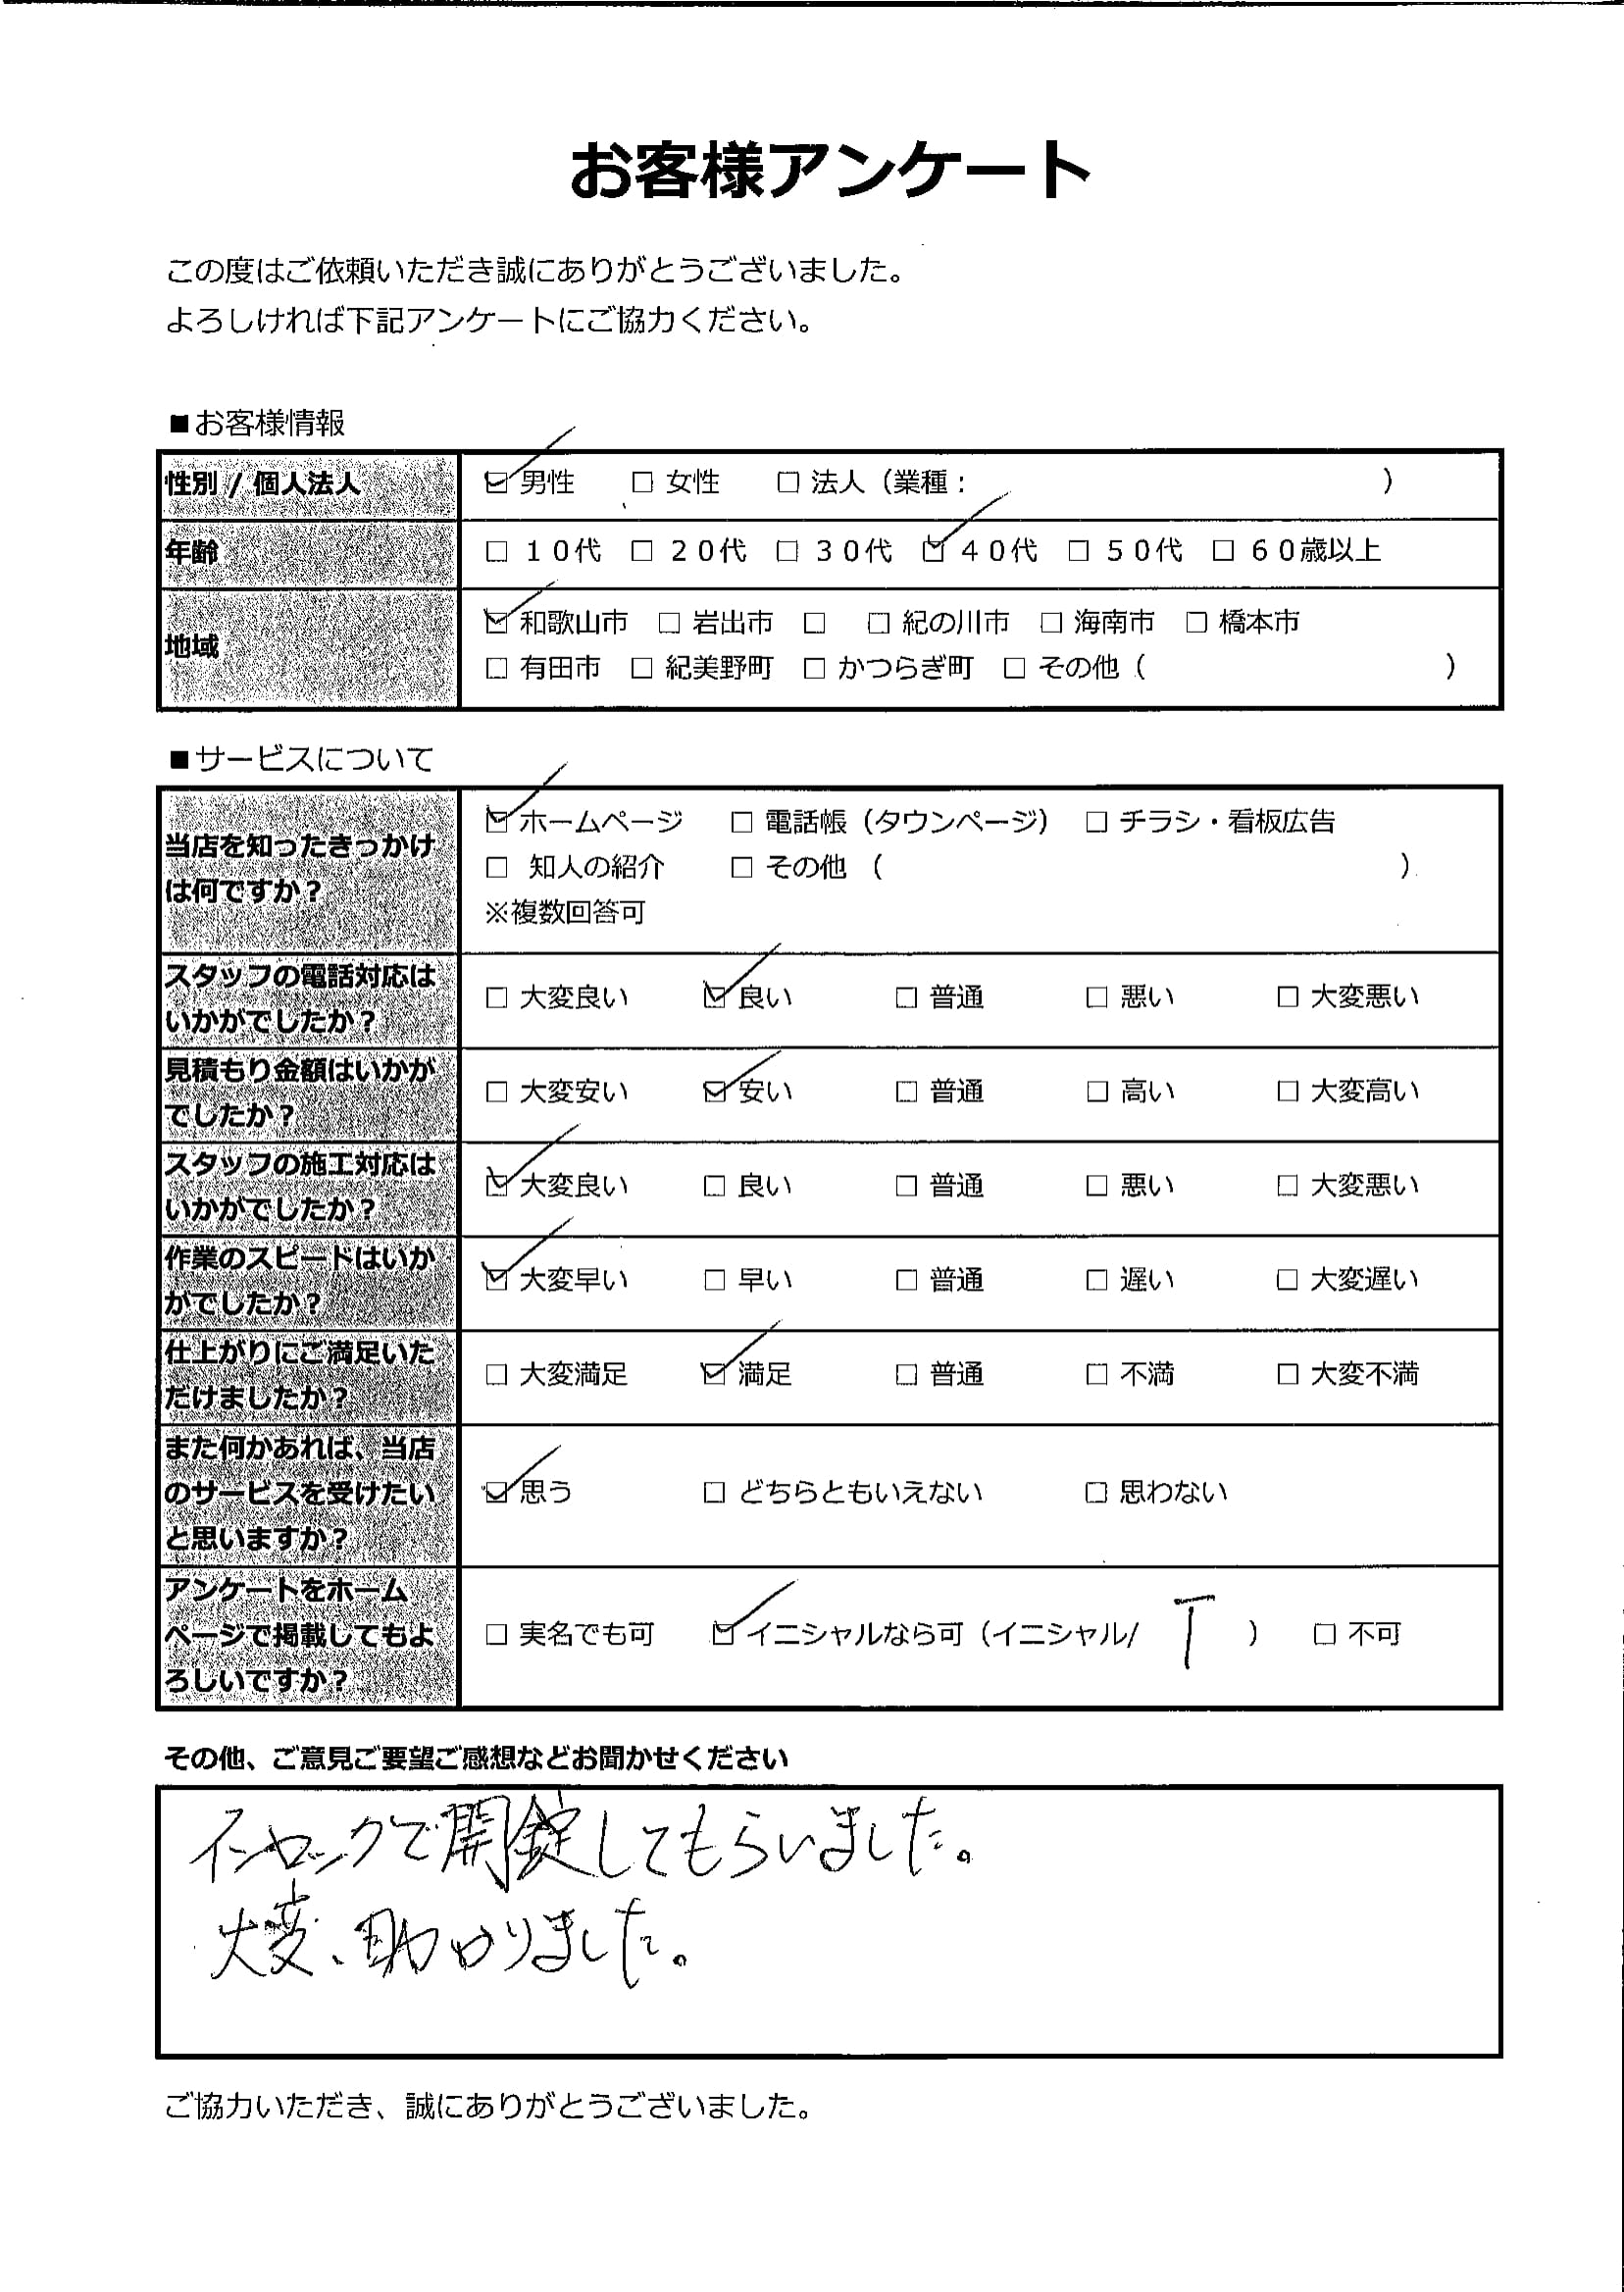 お客様アンケート
この度はご依頼いただき誠にありがとうございました。
よろしければ下記アンケートにご協力ください。
■お客様情報
性別 / 個人法人 ☑ 男性 □ 女性 □ 法人（業種： ）
年齢 □ １０代 □ ２０代 □ ３０代 ☑ ４０代 □ ５０代 □ ６０歳以上
地域 ☑ 和歌山市 □ 岩出市 □ □ 紀の川市 □ 海南市 □ 橋本市
□ 有田市 □ 紀美野町 □ かつらぎ町 □ その他（ ）
■サービスについて
当店を知ったきっかけ
は何ですか？
☑ ホームページ □ 電話帳（タウンページ） □ チラシ・看板広告
□ 知人の紹介 □ その他 （ ）
※複数回答可
スタッフの電話対応は
いかがでしたか？
□ 大変良い ☑ 良い □ 普通 □ 悪い □ 大変悪い
見積もり金額はいかが
でしたか？
□ 大変安い ☑ 安い □ 普通 □ 高い □ 大変高い
スタッフの施工対応は
いかがでしたか？
☑ 大変良い □ 良い □ 普通 □ 悪い □ 大変悪い
作業のスピードはいか
がでしたか？
☑ 大変早い □ 早い □ 普通 □ 遅い □ 大変遅い
仕上がりにご満足いた
だけましたか？
□ 大変満足 ☑ 満足 □ 普通 □ 不満 □ 大変不満
また何かあれば、当店
のサービスを受けたい
と思いますか？
☑ 思う □ どちらともいえない □ 思わない
アンケートをホーム
ページで掲載してもよ
ろしいですか？
□ 実名でも可 ☑ イニシャルなら可（イニシャル/ T ） □ 不可
その他、ご意見ご要望ご感想などお聞かせください
インロックで開錠してもらいました。
大変、助かりました。
ご協力いただき、誠にありがとうございました。